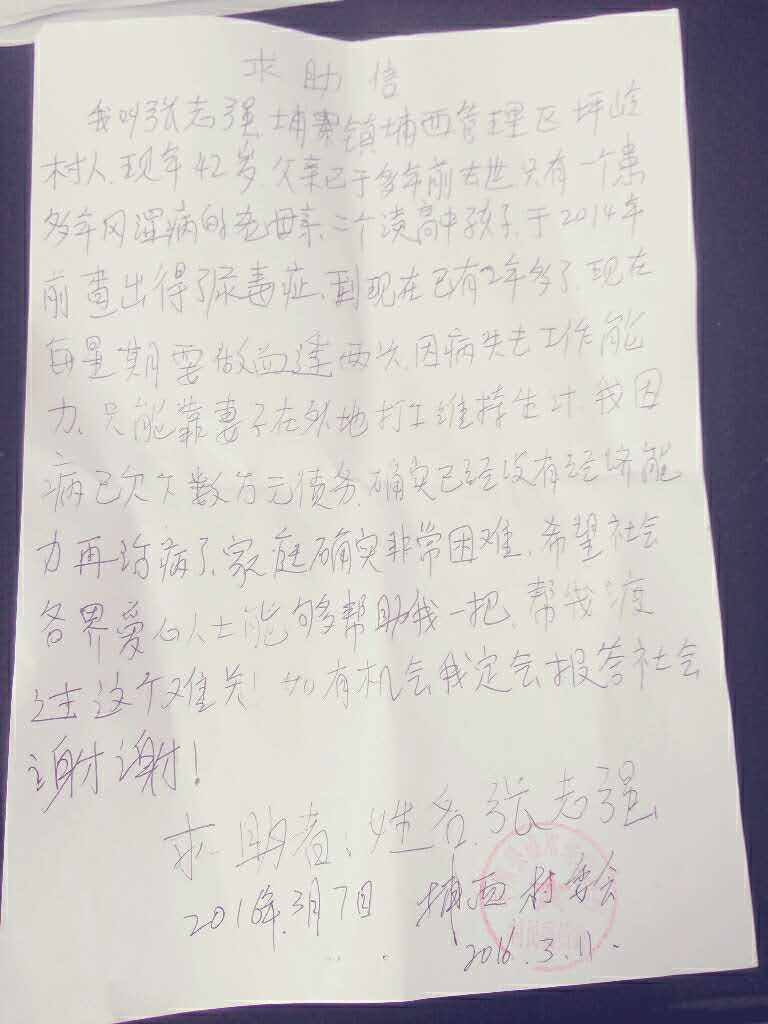 求助信
我叫张志强,埔寨镇埔西管理区坪岭
村人.现年42岁.父亲已于多年前去世.只有一个患
多年风湿病的老母亲,二个读高中孩子,于2014年
前查出得了尿毒症,到现在已有2年多了.现在
每星期要做血透两次,因病失去工作能
力,只能靠妻子在外地打工维持生计.我因
病已欠下数万元债务.确实已经没有经济能
力再治病了,家庭确实非常困难,希望社会
各界爱心人士能够帮助我一把,帮我渡
过这个难关!如有机会我定会报答社会
谢谢!
求助者:姓名.张志强
2016年.3月7日 埔西村委会
2016.3.11.